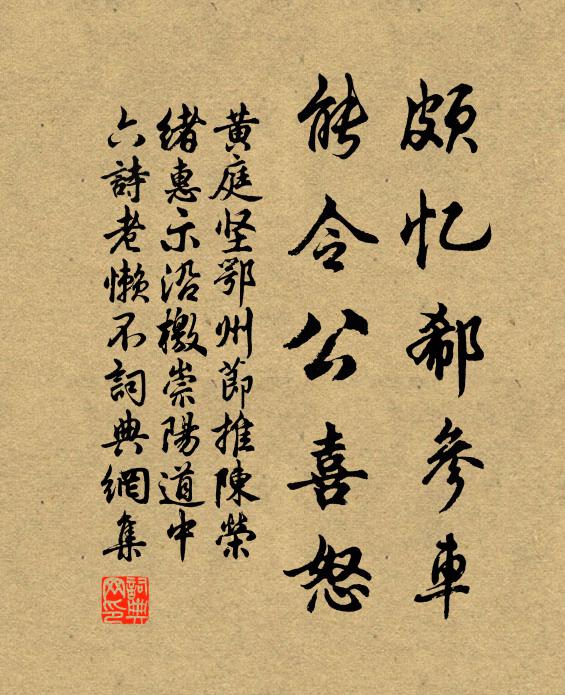 頗忆郗參車
能令公喜怒
黄庭坚鄂州節推陳榮
緒惠示沿檄崇陽道中
六詩老懒不詞典網集
詞典网印